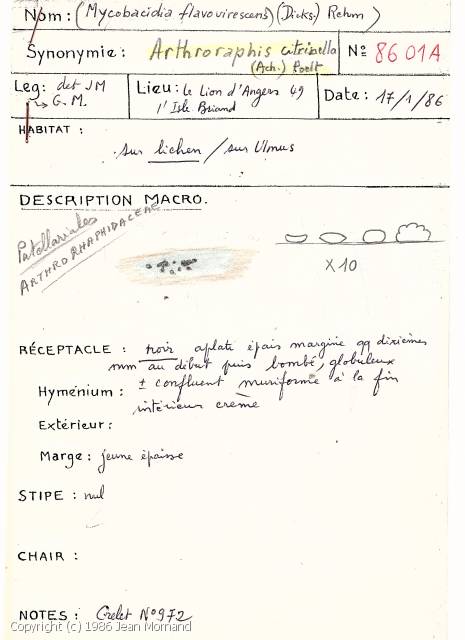 Nom: (Mycobacidia flavovirescens) (Dicks.) Rehm)
Synonymie: Arthroraphis citrinella
(Ach.) Poelt
N° 8601A
Leg: det JM
↳ G.M.
Lieu: le Lion d'Angers 49
l'Isle Briand
Date: 17/1/86
HABITAT :
sur lichen / sur Ulmus
DESCRIPTION MACRO.
Patellariales
ARTHRORHAPHIDACEAE
X10
RÉCEPTACLE : noir aplati épais marginé qq dixièmes
mm au début puis bombé, globuleux
Hyménium: ± confluent muriforme à la fin
intérieur crème
Extérieur:
Marge: jeune épaisse
STIPE : nul
CHAIR :
NOTES: Grelet N°972
Copyright (c) 1986 Jean Mornand